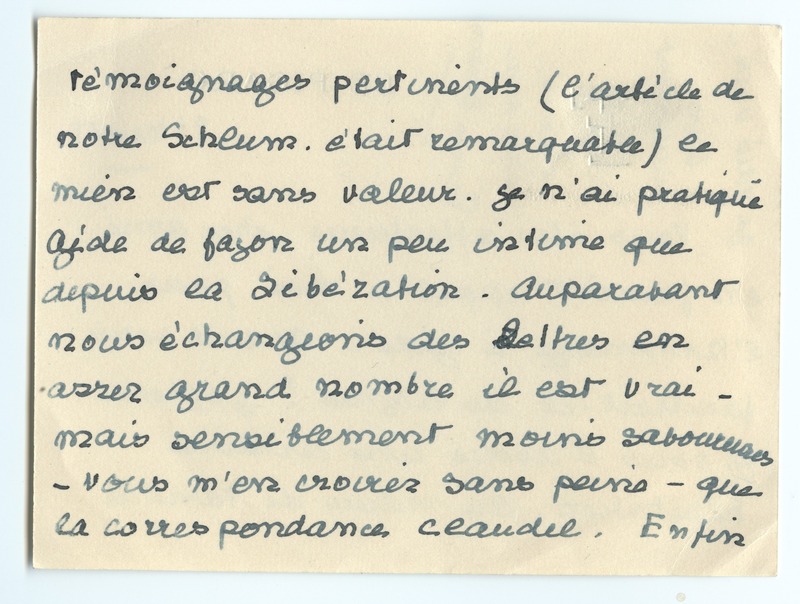 témoignages pertinents (l'article de
notre Schlum. était remarquable) le
mien est sans valeur. Je n'ai pratiqué
Gide de façon un peu intime que
depuis la Libération. Auparavant
nous échangeons des lettres en
assez grand nombre il est vrai -
mais sensiblement moins savoureuses
- vous m'en croirez sans peine - que
la correspondance Claudel. Enfin